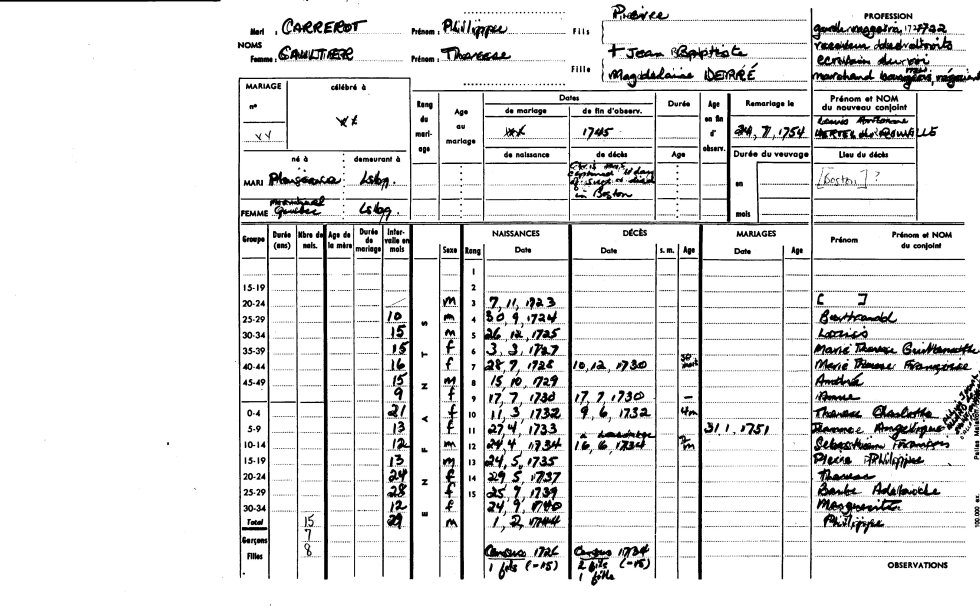 Mari : CARREROT Prénom : Philippe Fils Pierre PROFESSION
garde magasin, 1722
NOMS
Femme : GAULTIER Prénom : Therese + Jean Baptiste
ecrivain du roi
Fille Magdelaine DERRÉ marchand
MARIAGE célébré à Rang du mariage Age au mariage Dates Durée Age en fin d'observ. Remariage le Prénom et NOM du nouveau conjoint
n° de mariage de fin d'observ. Louis Antoine
XX XX XX 1745 24, 7, 1754 HERTEL de ROUVILLE
de naissance de décès Age Durée du veuvage Lieu du décès
né à demeurant à
MARI Lsbg. captured
died in Boston en [Boston] ?
FEMME Quebec Lsbg. mois
Groupe Durée (ans) Nbre de nais. Age de la mère Durée de mariage Intervalle en mois ENFANTS Sexe Rang NAISSANCES Date DÉCÈS Date s. m. Age MARIAGES Date Age Prénom Prénom et NOM du conjoint
1
15-19 2
20-24 m 3 7, 11, 1723 [ ]
25-29 10 m 4 30, 9, 1724 Bertrand
30-34 15 m 5 26, 12, 1725
35-39 15 f 6 3, 3, 1727 Marie Therese
40-44 16 f 7 28, 7, 1728 10, 12, 1730 Marie Therese Françoise
45-49 15 m 8 15, 10, 1729 André
9 f 9 17, 7, 1730 17, 7, 1730 - Anne
0-4 21 f 10 11, 3, 1732 9, 6, 1732 4m Therese Charlotte
5-9 13 f 11 27, 4, 1733 31, 1, 1751 Angelique
10-14 12 m 12 24, 4, 1734 16, 6, 1734 Sebastien François
15-19 13 m 13 24, 5, 1735 Pierre Philippe
20-24 24 f 14 29, 5, 1737 Therese
25-29 28 f 15 25, 9, 1739 Barbe Adelaide
30-34 12 f 24, 9, 1740 Marguerite
Total 15 29 m 1, 2, 1744 Philippe
Garçons 7
Filles 8 Census 1726 Census 1734
1 fils (-15) 2 fils (-15) OBSERVATIONS
1 fille